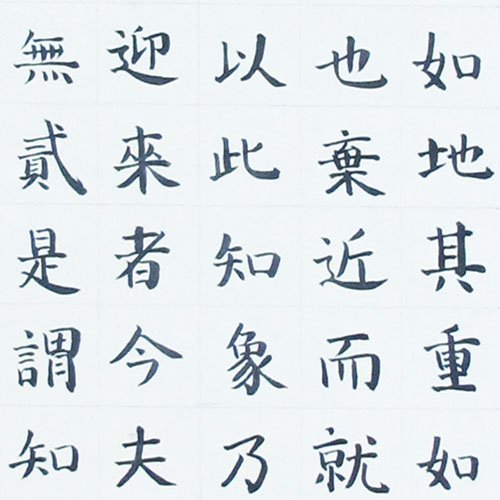 如地其重如
也棄近而就
以此知象乃
迎來者今夫
無貳是謂知